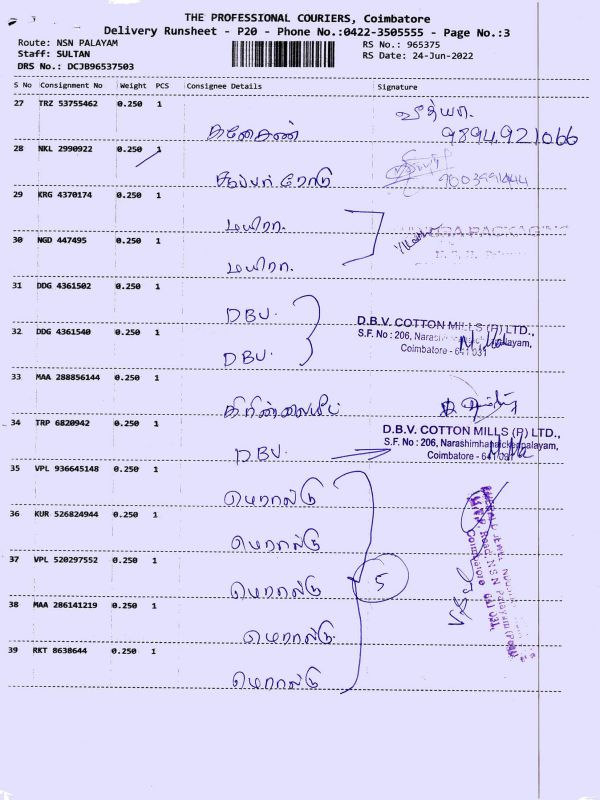 THE PROFESSIONAL COURIERS, Coimbatore
Delivery Runsheet - P20 - Phone No.:0422-3505555 - Page No.:3
Route: NSN PALAYAM
Staff: SULTAN
DRS No.: DCJB96537503
RS No.: 965375
RS Date: 24-Jun-2022
S No Consignment No Weight PCS Consignee Details Signature
27 TRZ 53755462 0.250 1
9894921066
28 NKL 2990922 0.250 1
ரோடு
9003991444
29 KRG 4370174 0.250 1
மயிரா.
30 NGD 447495 0.250 1
மயிரா.
31 DDG 4361502 0.250 1
DBV.
32 DDG 4361540 0.250 1
DBV.
D.B.V. COTTON MILLS (P) LTD.,
S.F. No : 206,
Coimbatore - 641 031
33 MAA 288856144 0.250 1
34 TRP 6820942 0.250 1
DBV.
D.B.V. COTTON MILLS (P) LTD.,
S.F. No : 206, Narashimhanaickenpalayam,
Coimbatore - 641 031
35 VPL 936645148 0.250 1
மெரால்டு
36 KUR 526824944 0.250 1
மெரால்டு
37 VPL 520297552 0.250 1
மெரால்டு
5
38 MAA 286141219 0.250 1
மெரால்டு
39 RKT 8638644 0.250 1
மெரால்டு
Road, N.S.N Palayam (Post)
Coimbatore 641 031.